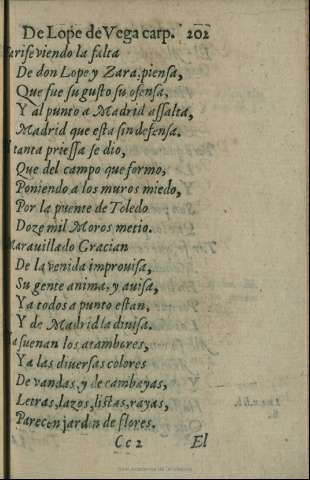 De Lope de Vega carp. 202
Tarife viendo la falta
De don Lope y Zara, piensa,
Que fue su gusto su ofensa,
Y al punto a Madrid assalta,
Madrid que esta sin defensa.
tanta priessa se dio,
Que del campo que formo,
Poniendo a los muros miedo,
Por la puente de Toledo
Doze mil Moros metio.
Maravillado Gracian
De la venida improuisa,
Su gente anima, y auisa,
Ya todos a punto estan,
Y de Madrid la diuisa.
Ya suenan los atambores,
Ya las diuersas colores
De vandas, y de cambayas,
Letras, lazos, listas, rayas,
Parecen jardin de flores.
Cc 2 El